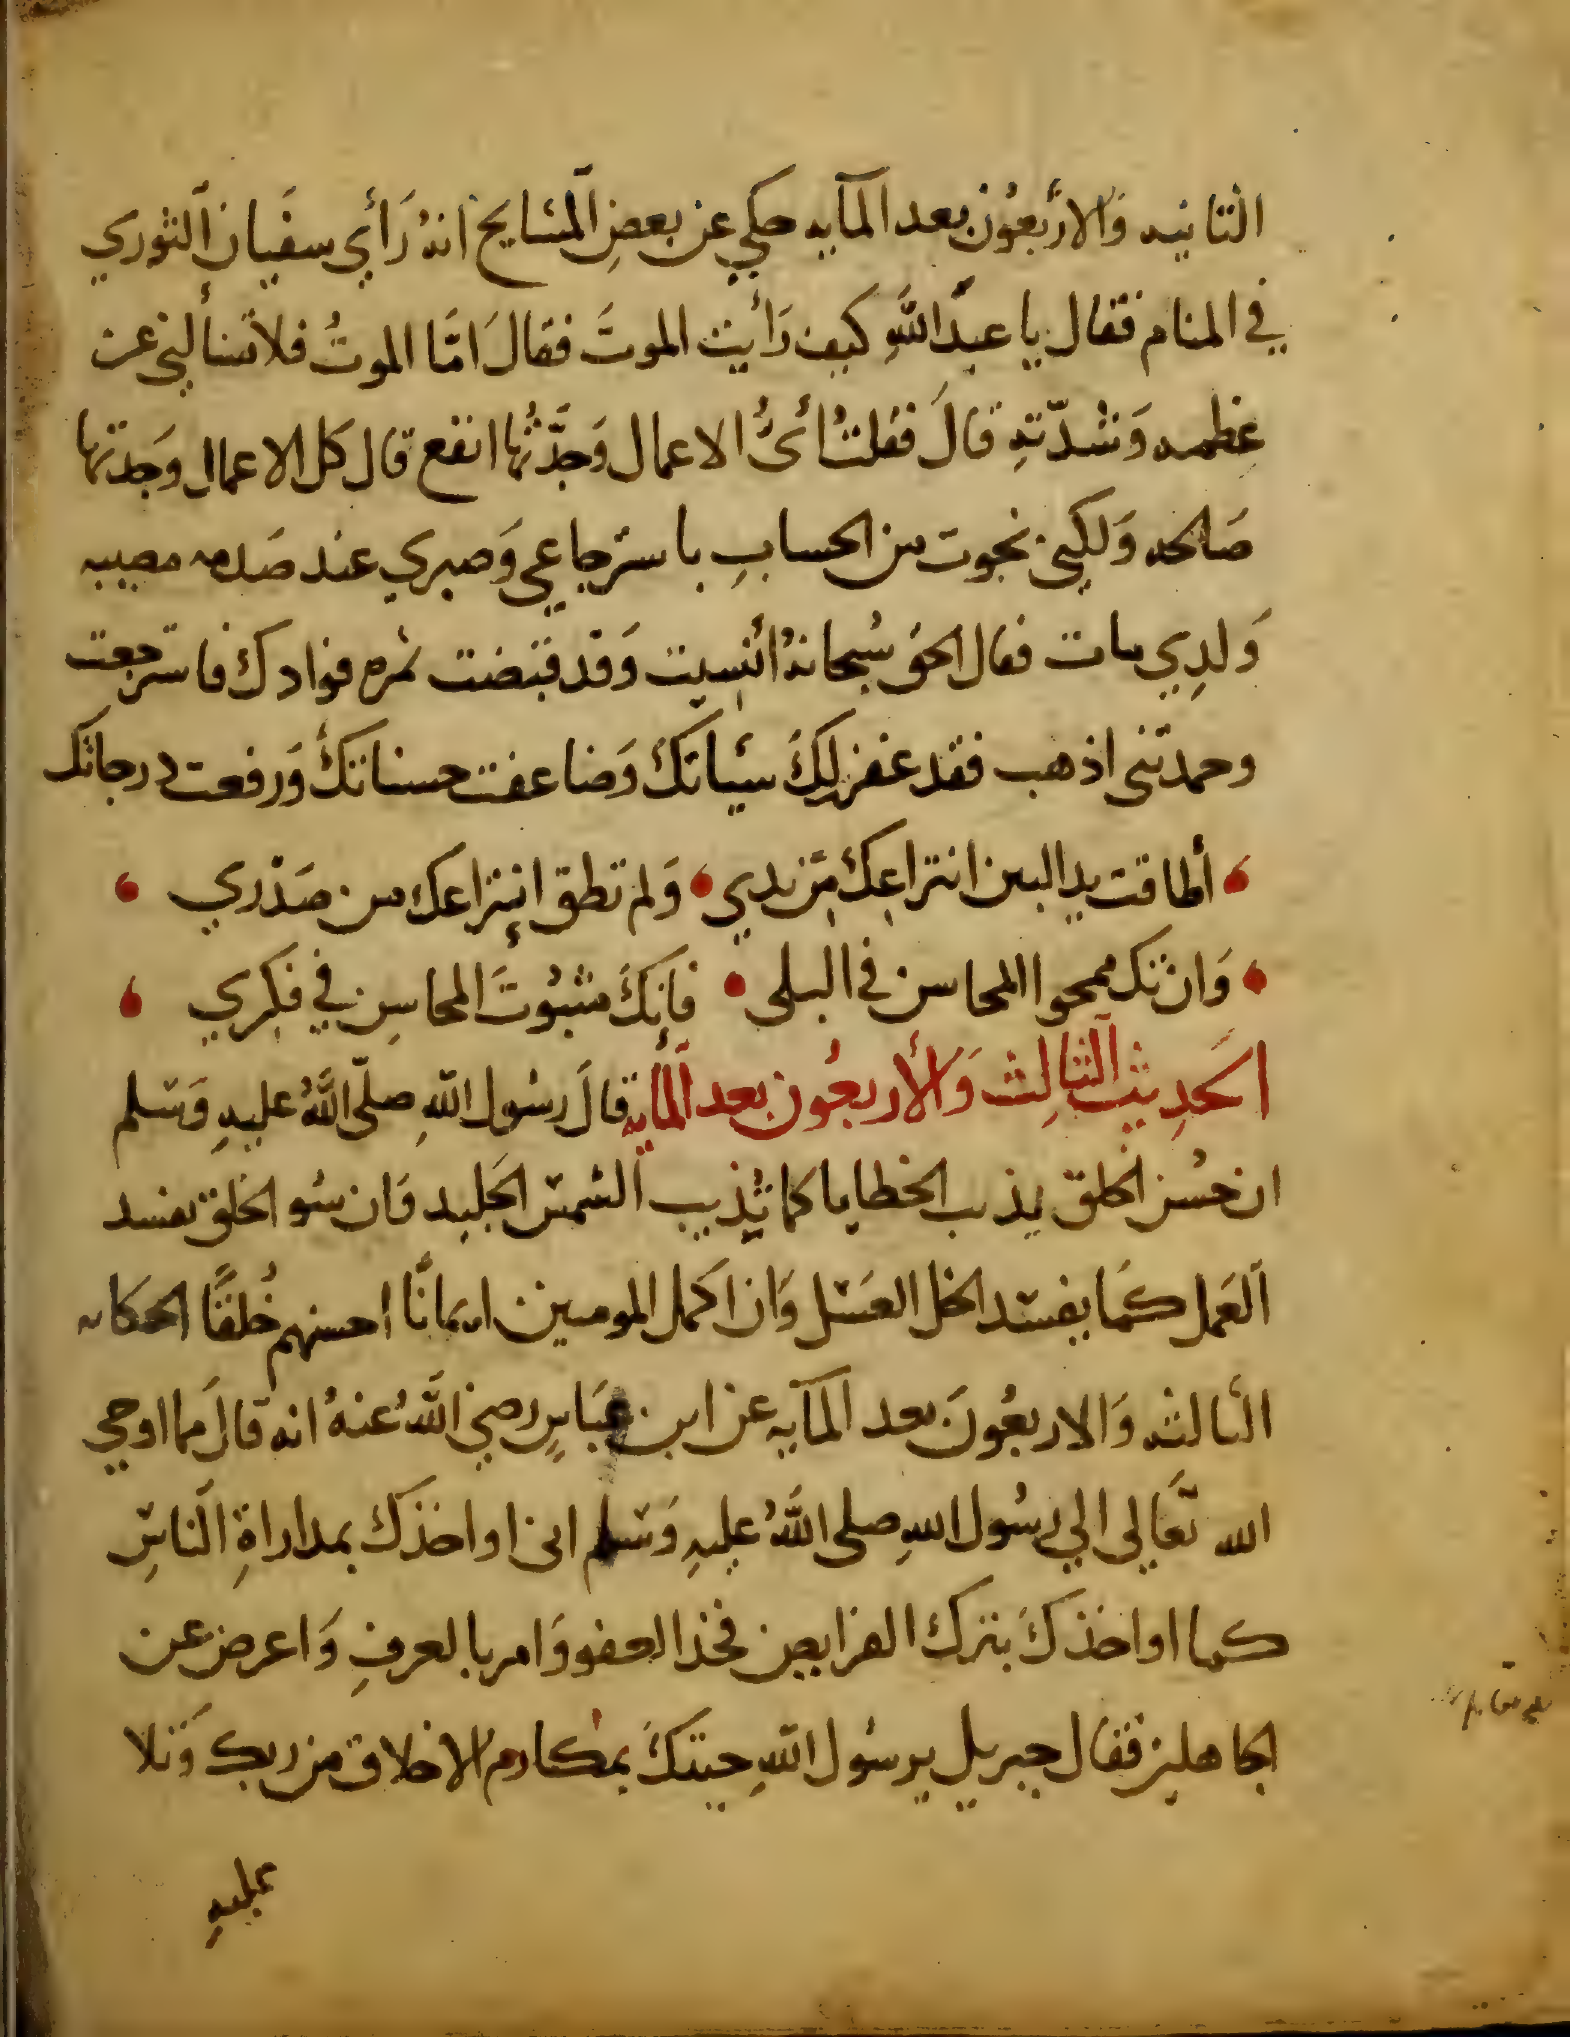 الثانيه وَالاربعُون بعد المآيه حكي عن بعضِ المشايخ انهُ رَأي سفيان الثوري
في المنام فقال يا عبدَ اللَّهِ كيف رَأيت الموتَ فقالَ امَّا الموتُ فلا تسألني عن
عِظمه وَشدّتهِ قالَ فقلتُ أىُّ الاعمال وَجدَّتُها انفع قال كل الاعمال وجدتها
صَالحه وَلكني نجوت من الحسابِ باسترجاعي وَصبري عند صَدمه مصيبه
وَلدِي مات فقال الحق سُبحانهُ أنسيت وَقد قبضت ثمره فوادك فاسترجعت
وحمدتنى اذهب فقد غفر لكَ سيأتكَ وَضاعفت حسناتكَ وَرفعت درجاتك
أطاقت يد البين انتزاعك مِن يدي وَلم تطق اِنتزاعك من صَدْري
وَان تك ممحوا المحاسن في البلى فاِنكَ مثبُوتَ المحاسِن في فِكري
الحَدِيث الثالِث وَالأربعُون بعد المأيه قالَ رسُول اللهِ صلّى اللَّهُ عليهِ وَسَلم
ان حُسن الخلق يذيب الخطايا كما تُذيب الشمس الجَليد وَان سُو الخلق يفسد
العَمل كمَا يفسد الخل العَسَل وَان اكمل المومنين ايمانًا احسنهم خُلقًا الحكايه
الثالثه وَالاربعُونَ بعد المآيه عن ابن عبَاسٍ رضي اللَّهُ عنهُ انه قالَ مما اوحي
الله تعَالي الي رسُول اللهِ صلى اللَّهُ عليهِ وَسَلم انى اواخذكَ بمداراةِ الناسِ
كما اواخذكَ بترك الفرايض فخذ العفو وَامر بالعرفِ وَاعرض عن
الجاهلين فقال جبريل يرسُول اللهِ جيتكَ بمكارم الاخلاق من ربك وَتلا
عليهِ